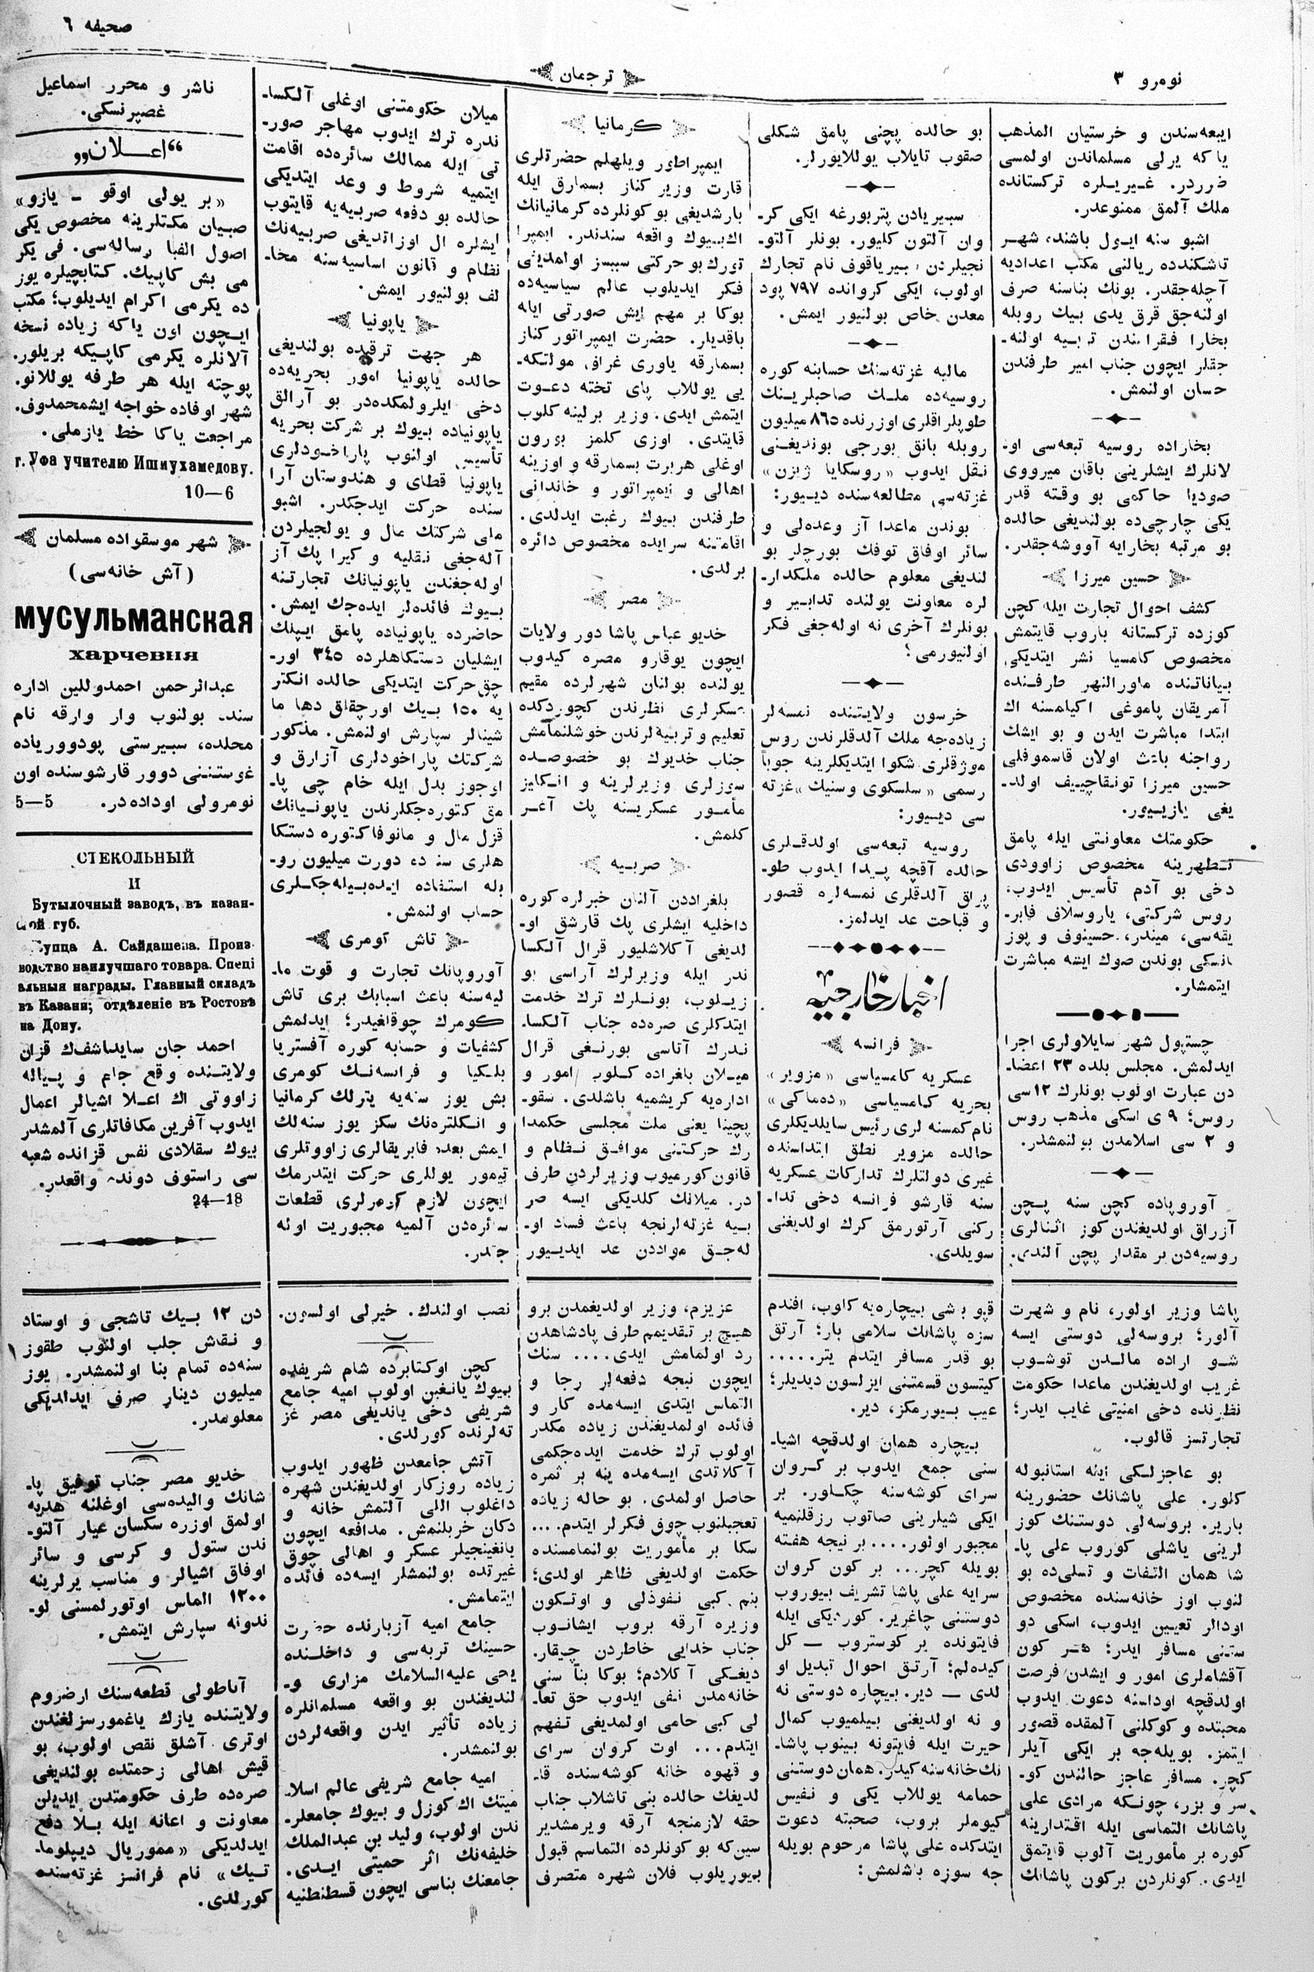 نومرو ٣
ترجمان
صحیفه ٦
ایبعه‌سندن و خرستیان المذهب
یاکه یرلی مسلماندن اولمسی
ضرردر. غیریلره ترکستانده
ملك آلمق ممنوعدر.
اشبو سنه ایلول باشنده شهر
تاشکندده ریالنی مکتب اعدادیه
آچله‌جقدر. بونك بناسنه صرف
اولنه‌جق قرق یدی بیك روبله
بخارا فقراسندن تربیه اولنه-
جقلر ایچون جناب امیر طرفندن
حسان اولنمش.
بخاراده روسیه تبعه‌سی او-
لانلرك ایشلرینی باقان میرووی
صودیا حاکمی بو وقته قدر
یکی چارچی‌ده بولندیغی حالده
بو مرتبه بخارایه آووشه‌جقدر.
حسین میرزا
کشف احوال تجارت ایله کچن
کوزده ترکستانه باروب قایتمش
مخصوص کامسیا نشر ایتدیکی
بیاناتنده ماورالنهر طرفنده
آمریقان پاموغی اکیلمسنه اك
ابتدا مباشرت ایدن و بو ایشك
رواجنه باعث اولان قاسموفلی
حسین میرزا توتیقاچییف اولد-
یغی یازییور.
حکومتك معاونتی ایله پامق
تطهرینه مخصوص زاوودی
دخی بو آدم تأسیس ایدوب،
روس شرکتی، یاروسلاف فابر-
یقه‌سی، میندر، حسینوف و پوز
نانسکی بوندن صوك ایشه مباشرت
ایتمشار.
چستپول شهر سایلاولری اجرا
ایدلمش. مجلس بلده ٢٣ اعضا-
دن عبارت اولوب بونلرك ١٢سی
روس؛ ٩ ی اسکی مذهب روس
و ٢ سی اسلامدن بولنمشدر.
آوروپاده کچن سنه پچن
آزراق اولدیغندن کوز اثنالری
روسیه‌دن بر مقدار پچن آلندی.
بو حالده پچنی پامق شکلی
صقوب تایلاب یوللایورلر.
سبیریادن پتربورغه ایکی کر-
وان آلتون کلیور. بونلر آلتو-
نجیلردن، بیریاقوف نام تجارك
اولوب، ایکی کروانده ٧٩٧ پود
معدن خاص بولنیور ایمش.
مالیه غزته‌سنك حسابنه کوره
روسیه‌ده ملك صاحبلرینك
طوپلر اقلری اوزرنده ٨٦٥ میلیون
روبله بانق بورجی بوندیغنی
نقل ایدوب «روسکایا ژیزن»
غزته‌سی مطالعه‌سنده دییور:
بوندن ماعدا آز وعده‌لی و
سائر اوفاق توفك بورچلر بو
لندیغی معلوم حالده ملکدار-
لره معاونت یولنده تدابیر و
بونلرك آخری نه اوله‌جغی فکر
اولنیورمی؟
خرسون ولایتنده نمسه‌لر
زیاده‌جه ملك آلدقلرندن روس
موژقلری شکوا ایتدیکلرینه جوبا
رسمی «سلسکوی وسنیك» غزته
سی دییور:
روسیه تبعه‌سی اولدقلری
حالده آقچه پیدا ایدوب طو-
پراق آلدقلری نمسه‌لره قصور
و قباحت عد ایدلمز.
اخبار خارجیه
فرانسه
عسکریه کامسیاسی «مزویر»
بحریه کامسیاسی «ده‌ماکی»
نام کمسنه لری رئیس سایلدیکلری
حالده مزویر نطق ابتداسنده
غیری دولتلرك تدارکات عسکریه
سنه قارشو فرانسه دخی تدا-
رکنی آرتورمق کرك اولدیغنی
سویلدی.
کرمانیا
ایمپراطور ویلهلم حضرتلری
قارت وزیر کناز بسمارق ایله
بارشدیغی بو کونلرده کرمانیانك
اك بیوك واقعه سندندر. ایمپرا
تورك بو حرکتی سببسز اولمدیغی
فکر ایدیلوب عالم سیاسیه‌ده
بوکا بر مهم ایش صورتی ایله
باقدیلر. حضرت ایمپراتور کناز
بسمارقه یاوری غراف مولتکه-
یی یوللاب پای تخته دعوت
ایتمش ایدی. وزیر برلینه کلوب
قایتدی. اوزی کلمز بورون
اوغلی هربرت بسمارقه و اوزینه
اهالی و ایمپراتور و خاندانی
طرفندن بیوك رغبت ایدلدی.
اقامتنه سرایده مخصوص دائره
برلدی.
مصر
خدیو عباس پاشا دور ولایات
ایچون یوقارو مصره کیدوب
یولنده بولنان شهرلرده مقیم
عسکرلری نظرندن کچوردکده
تعلیم و تربیه‌لرندن خوشلنمامش
جناب خدیوك بو خصوصده
سوزلری وزیرلرینه و انکلیز
مأمور عسکریسنه پك آغر
کلمش.
صربیه
بلغراددن آلنان خبرلره کوره
داخلیه ایشلری پك قارشق او-
لدیغی آکلاشلیور قرال آلکسا
ندر ایله وزیرلرك آراسی بو
زیلوب، بونلرك ترك خدمت
ایتدکلری صره‌ده جناب آلکسا-
ندرك آتاسی بورنغی قرال
میلان بلغراده کلوب امور و
اداره‌یه کریشمیه باشلدی. سقو-
پچینا یعنی ملت مجلسی حکمدا
رك حرکتنی موافق نظام و
قانون کورمیوب وزیرلردن طرف
در. میلانك کلدیکی ایسه صر
بیه غزته‌لرنجه باعث فساد او-
له‌جق مواددن عد ایدییور
میلان حکومتنی اوغلی آلکسا-
ندره ترك ایدوب مهاجر صور-
تی ایله ممالك سائره‌ده اقامت
ایتمیه شروط و وعد ایتدیکی
حالده بو دفعه صربیه‌یه قایتوب
ایشلره ال اوزاتدیغی صربیه‌نك
نظام و قانون اساسیه‌سنه مخا-
لف بولنیور ایمش.
یاپونیا
هر جهت ترقیده بولندیغی
حالده یاپونیا امور بحریه‌ده
دخی ایلرولمکده‌در بو آرالق
یاپونیاده بیوك بر شرکت بحریه
تأسیس اولنوب پاراخودلری
یاپونیا قطای و هندوستان آرا
سنده حرکت ایدجکدر. اشبو
ملی شرکتك مال و یولجیلردن
آله‌جغی نقلیه و کیرا پك آز
اوله‌جغندن یاپونیانك تجارتنه
بیوك فائده‌لر ایده‌جك ایمش.
حاضرده یاپونیاده پامق ایپلك
ایشلیان دستکاهلرده ٣٤٥ اور-
چق حرکت ایتدیکی حالده انکتر
یه ١٥٠ بیك اورچقلق دها ما
شینالر سپارش اولنمش. مذکور
شرکتك پاراخودلری آزارق و
اوجوز بدل ایله خام چی پا-
مق کتوره‌جکلرندن یاپونیانك
قزل مال و مانوفاکتوره دستکا
هلری سنه ده دورت میلیون رو-
بله استفاده ایده‌بیله‌جکلری
حساب اولنمش.
تاش کومری
آوروپانك تجارت و قوت ما-
لیه‌سنه باعث اسبابك بری تاش
کومرك چوقلغیدر؛ ایدلمش
کشفیات و حسابه کوره آفستریا
بلکیا و فرانسه‌نك کومری
بش یوز سنه‌یه یترلك کرمانیا
و انکلتره‌نك سکز یوز سنه‌لك
ایمش بعده فابریقالری زاووتلری
تیمور یوللری حرکت ایتدرمك
ایچون لازم کومرلری قطعات
سائره‌دن آلمیه مجبوریت اوله
جقدر.
ناشر و محرر اسماعیل
غصپرنسکی.
“اعــلان„
«بر یولی اوقو - یازو»
صبیان مکتلرینه مخصوص یکی
اصول الفبا رساله‌سی. فی یکر
می بش کاپیك. کتابچیلره یوز
ده یکرمی اکرام ایدیلوب؛ مکتب
ایچون اون یاکه زیاده نسخه
آلانلره یکرمی کاپیکه بریلور.
پوچته ایله هر طرفه یوللانو.
شهر اوفاده خواجه ایشمحمدوف.
مراجعت یاکا خط یازملی.
г. Уфа учителю Ишмухамедову.
10—6
شهر موسقواده مسلمان
(آش خانه‌سی)
мусульманская
харчевня
عبدالرحمن احمدوللین اداره
سنده بولنوب وار وارقه نام
محلده، سیبرستی پودووریاده
غوستننی دوور قارشوسنده اون
نومرولی اوداده‌در. 5—5
СТЕКОЛЬНЫЙ
И
Бутылочный заводъ, въ казан-
ской губ.
Купца А. Сайдашева. Произ-
водство наилучшаго товара. Спеці
альныя награды. Главный складъ
въ Казани; отдѣленіе въ Ростовѣ
на Дону.
احمد جان سایداشف‌ك قزان
ولایتنده وقع جام و پیاله
زاووتی اك اعلا اشیالر اعمال
ایدوب آفرین مکافاتلری آلمشدر
بیوك سقلادی نفس قزانده شعبه
سی راستوف دوننده واقعدر.
24—18
پاشا وزیر اولور، نام و شهرت
آلور؛ بروسه‌لی دوستی ایسه
شو اراده مالدن توشوب
غریب اولدیغندن ماعدا حکومت
نظرنده دخی امنیتی غایب ایدر؛
تجارتسز قالوب.
بو عاجزلکی ایله استانبوله
کلور. علی پاشانك حضورینه
باریر. بروسه‌لی دوستنك کوز
لرینی یاشلی کوروب علی پا-
شا همان التفات و تسلی‌ده بو
لنوب اوز خانه‌سنده مخصوص
اودالر تعیین ایدوب، اسکی دو
ستنی مسافر ایدر؛ هر کون
آقشاملری امور و ایشدن فرصت
اولدقچه اوداسنه دعوت ایدوب
محبتده و کوکلنی آلمقده قصور
ایتمز. بویله‌جه بر ایکی آیلر
کچر. مسافر عاجز حالندن کو-
سر و بزر، چونکه مرادی علی
پاشانك التماسی ایله اقتدارینه
کوره بر مأموریت آلوب قایتمق
ایدی. کونلردن برکون پاشانك
قپو بشی بیچاره‌یه کلوب، افندم
سزه پاشانك سلامی بار؛ آرتق
بو قدر مسافر ایتدم یتر.....
کیتسون قسمتنی ایزلسون دیدیلر؛
عیب بیورمکز، دیر.
بیچاره همان اولدقچه اشیا-
سنی جمع ایدوب بر کروان
سرای کوشه‌سنه چکلور. بر
ایکی شیلرینی صاتوب رزقلنمیه
مجبور اولور.... بر نیجه هفته
بویله کچر... بر کون کروان
سرایه علی پاشا تشریف بیوروب
دوستنی چاغریر. کوردیکی ایله
فایتونده یر کوستروب — کل
کیده‌لم؛ آرتق احوال تبدیل او
لدی — دیر. بیچاره دوستی نه
و نه اولدیغنی بیلمیوب کمال
حیرت ایله فایتونه بینوب پاشا-
نك خانه‌سنه کیدر. همان دوستنی
حمامه یوللاب یکی و نفیس
کیوملر بروب، صحبته دعوت
ایتدکده علی پاشا مرحوم بویله
جه سوزه باشلمش:
عزیزم، وزیر اولدیغمدن برو
هیچ بر تقدیمم طرف پادشاهدن
رد اولمامش ایدی.... سنك
ایچون نیجه دفعه‌لر رجا و
التماس ایتدی ایسه‌مده کار و
فائده اولمدیغندن زیاده مکدر
اولوب ترك خدمت ایده‌جکمی
آکلاتدی ایسه‌مده ینه بر ثمره
حاصل اولمدی. بو حاله زیاده
تعجبلنوب چوق فکرلر ایتدم....
سکا بر مأموریت بولنمامسنده
حکمت اولدیغی ظاهر اولدی؛
بنم کبی نفوذلی و اوتکون
وزیره آرقه بروب ایشانوب
جناب خدایی خاطردن چیقار.
دیغکی آکلادم؛ بوکا بنأ سنی
خانه‌مدن نفی ایدوب حق تعا-
لی کبی حامی اولمدیغی تفهم
ایتدم... اوت کروان سرای
و قهوه خانه کوشه‌سنده قا-
لدیغك حالده بنی تاشلاب جناب
حقه لازمنجه آرقه ویرمشدیر
سین‌که بو کونلرده التماسم قبول
بیوریلوب فلان شهره متصرف
نصب اولندك. خیرلی اولسون.
کچن اوکتابرده شام شریفده
بیوك یانغین اولوب امیه جامع
شریفی دخی یاندیغی مصر غز
ته‌لرنده کورلدی.
آتش جامعدن ظهور ایدوب
زیاده روزکار اولدیغندن شهره
داغلوب اللی آلتمش خانه و
دکان خربلنمش. مدافعه ایچون
یانغینجیلر عسکر و اهالی چوق
غیرتده بولنمشلر ایسه‌ده فائده
ایتمامش.
جامع امیه آزبارنده حضرت
حسینك تربه‌سی و داخلنده
یحی علیه‌السلامك مزاری و-
لندیغندن بو واقعه مسلمانلره
زیاده تأثیر ایدن واقعه‌لردن
بولنمشدر.
امیه جامع شریفی عالم اسلا-
میتك اك کوزل و بیوك جامعلر-
ندن اولوب، ولید بن عبدالملك
خلیفه‌نك اثر حمیتی ایدی.
جامعنك بناسی ایچون قسطنطنیه
دن ١٢ بیك تاشجی و اوستاد
و نقاش جلب اولنوب طقوز
سنه‌ده تمام بنا اولنمشدر. یوز
میلیون دینار صرف ایدلدیکی
معلومدر.
خدیو مصر جناب توفیق پا-
شانك والیده‌سی اوغلنه هدیه
اولمق اوزره سکسان عیار آلتو-
ندن ستول و کرسی و سائر
اوفاق اشیالر و مناسب یرلرینه
١٢٠٠ الماس اوتورلمسنی لو-
ندونه سپارش ایتمش.
آناطولی قطعه‌سنك ارضروم
ولایتنده یازك یاغمورسزلغندن
اوتری آشلق نقص اولوب، بو
قیش اهالی زحمتده بولندیغی
صره‌ده طرف حکومتدن ایدیلن
معاونت و اعانه ایله بلا دفع
ایدلدیکی «مموریال دیپلوما-
تیك» نام فرانسز غزته‌سنده
کورلدی.